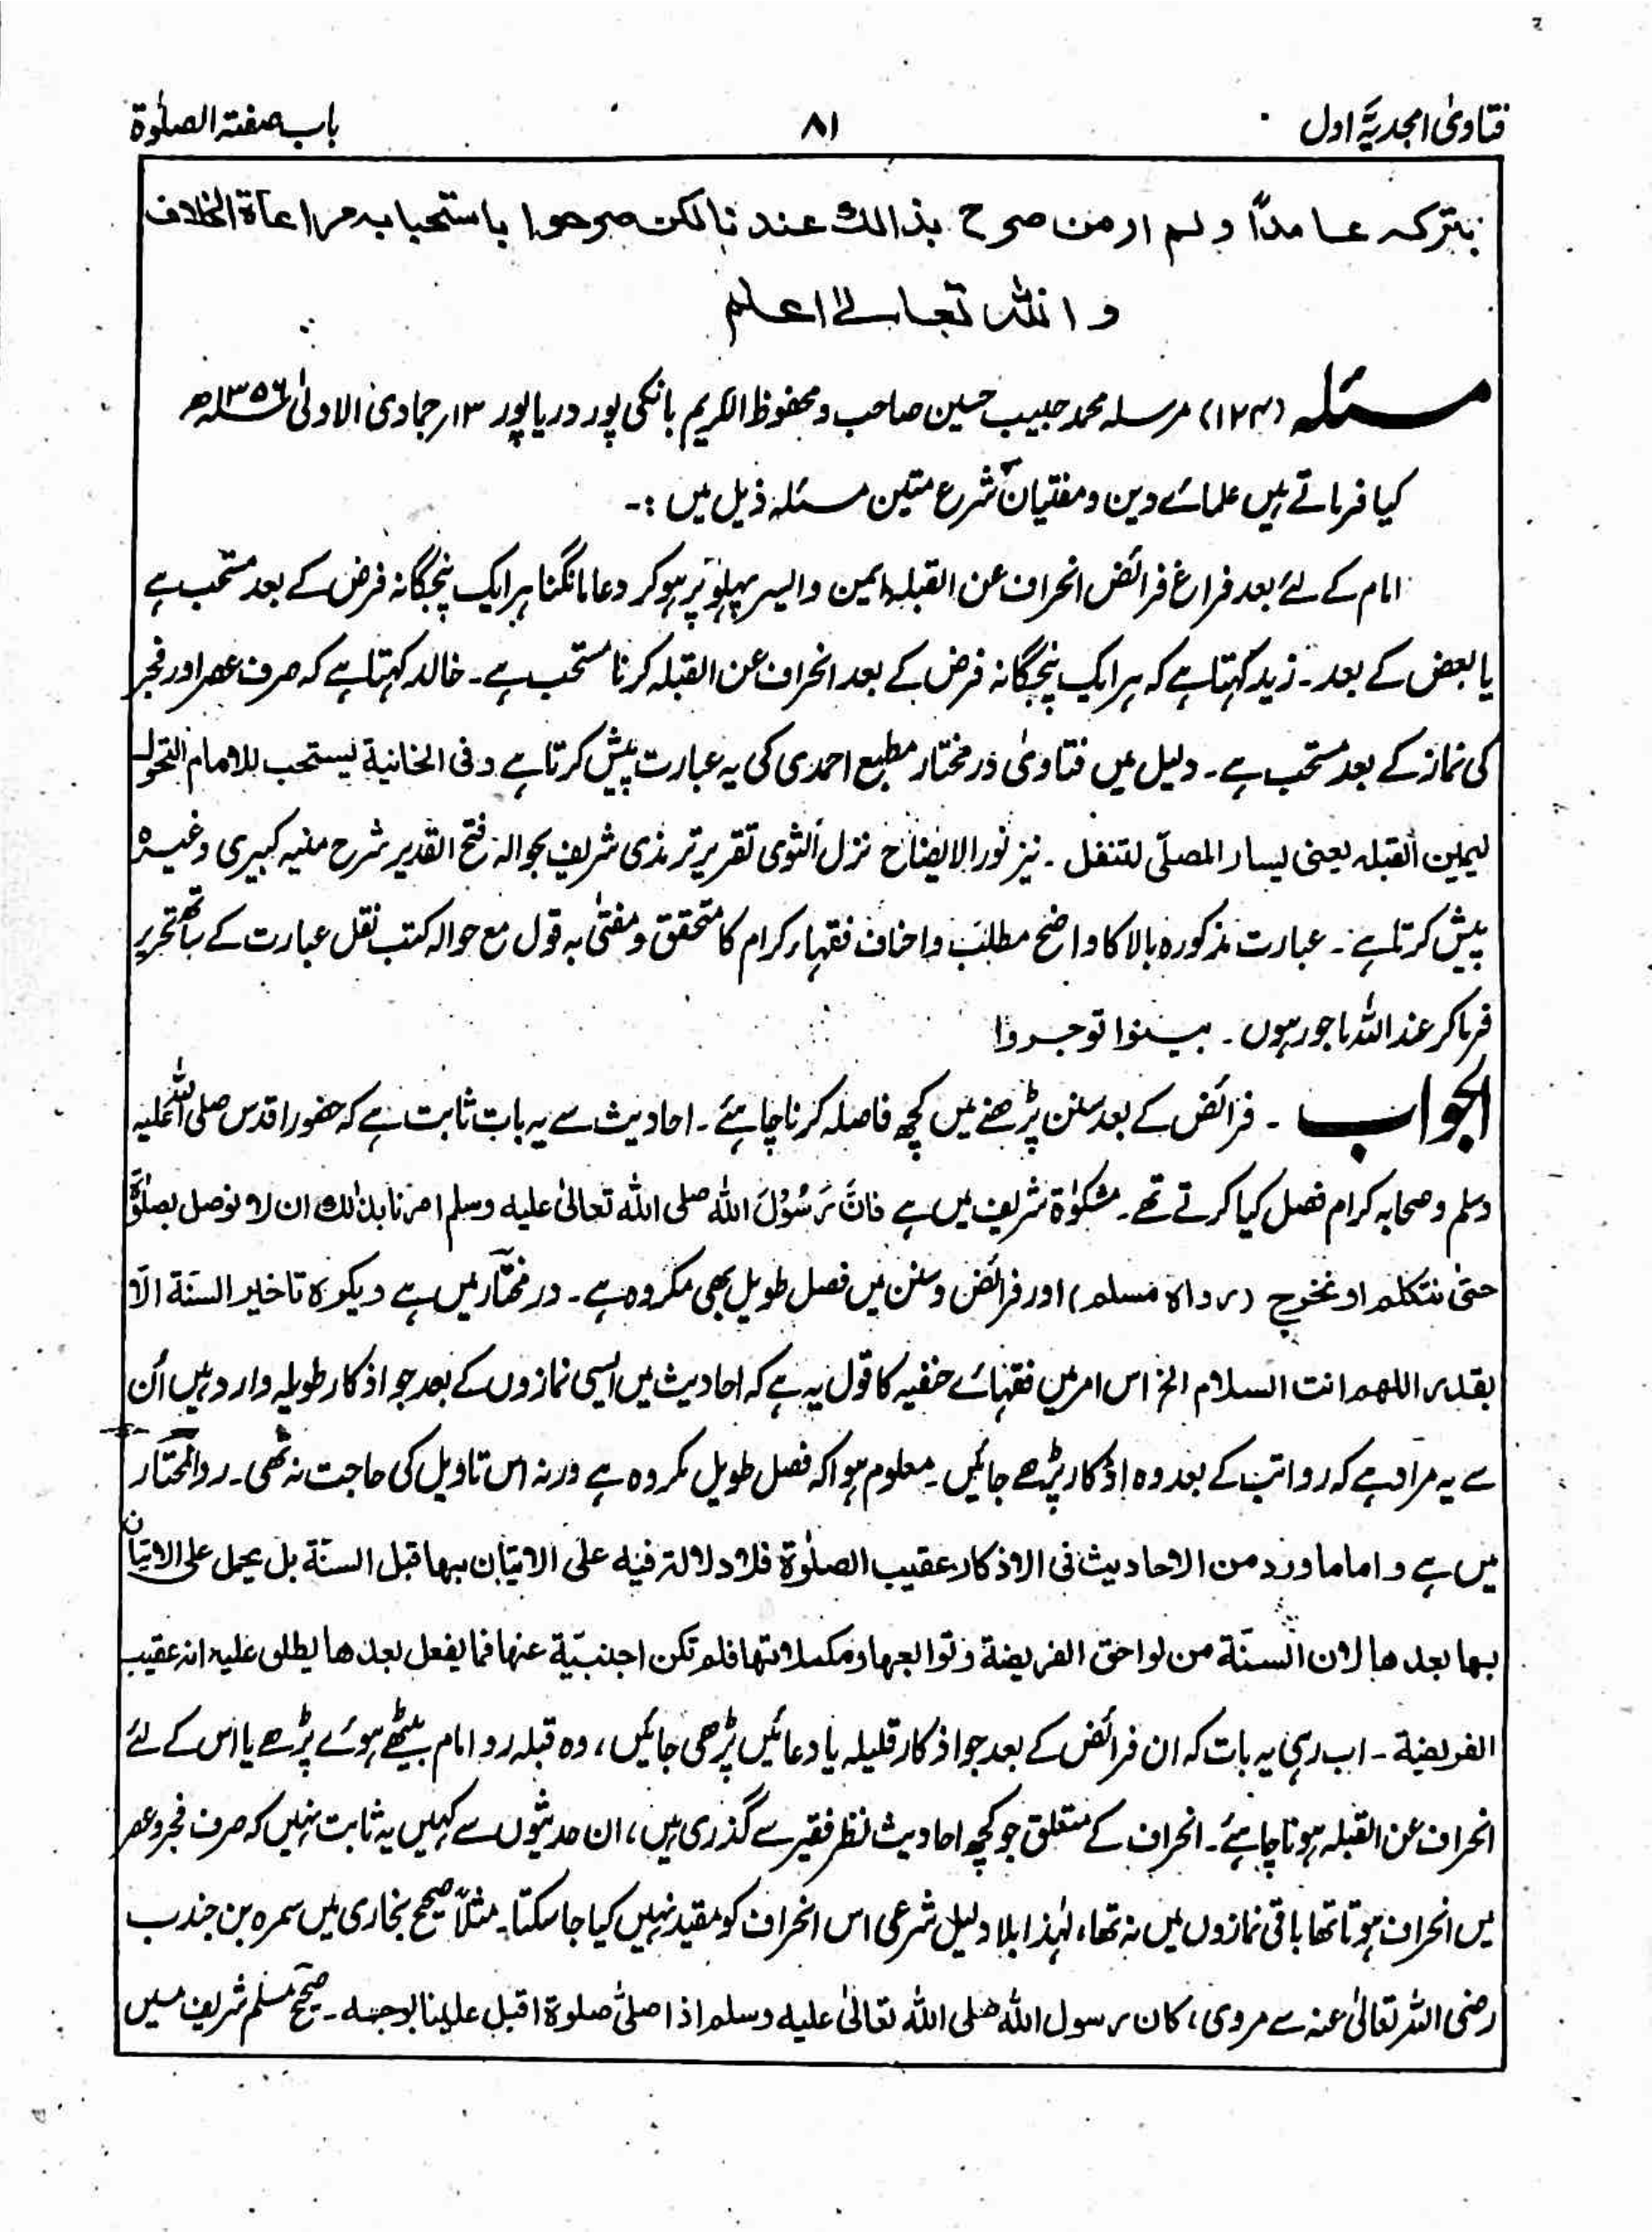 فتاویٰ امجدیہ اول ۸۱ باب صفتہ الصلوٰۃ
بترکہ عامدًا ولم ار من صرح بذالك عندنا لکن صرحوا باستحبابہ مراعاۃ الخلاف
واللہ تعالےٰ اعلم
مسئلہ (۱۲۴) مرسلہ محمد حبیب حسین صاحب و محفوظ الکریم بانکی پور دریاپور ۱۳ر جمادی الاولیٰ ۱۳۵۶ھ
کیا فرماتے ہیں علمائے دین و مفتیان شرع متین مسئلہ ذیل میں :۔
امام کے لئے بعد فراغ فرائض انحراف عن القبلہ ایمین والیسر پہلو پر ہوکر دعا مانگنا ہر ایک پنجگانہ فرض کے بعد مستحب ہے
یا بعض کے بعد۔ زید کہتا ہے کہ ہر ایک پنجگانہ فرض کے بعد انحراف عن القبلہ کرنا مستحب ہے۔ خالد کہتا ہے کہ صرف عصر اور فجر
کی نماز کے بعد مستحب ہے۔ دلیل میں فتاویٰ درمختار مطبع احمدی کی یہ عبارت پیش کرتا ہے وفی الخانیة یستحب للامام التحول
لیمین القبلہ یعنی یسار المصلّی لتنفل ۔ نیز نور الایضاح نزل الثوی تقریر ترمذی شریف بحوالہ فتح القدیر شرح منیہ کبیری وغیرہ
پیش کرتا ہے۔ عبارت مذکورہ بالا کا واضح مطلب واحناف فقہاء کرام کا متحقق و مفتیٰ بہ قول مع حوالہ کتب نقل عبارت کے ساتھ تحریر
فرما کر عند اللہ ماجور ہوں۔ بینوا توجروا
الجواب ۔ فرائض کے بعد سنن پڑھنے میں کچھ فاصلہ کرنا چاہئے۔ احادیث سے یہ بات ثابت ہے کہ حضور اقدس صلی اللہ علیہ
وسلم و صحابہ کرام فصل کیا کرتے تھے۔ مشکوٰۃ شریف میں ہے فانَّ رَسُوْلَ اللہ صلی اللہ تعالیٰ علیہ وسلم امرنا بذالك ان لا نوصل بصلوٰۃ
حتیٰ نتکلم او نخرج (رواہ مسلم) اور فرائض و سنن میں فصل طویل بھی مکروہ ہے۔ درمختار میں ہے ویکرہ تاخیر السنة الّا
بقدر اللھم انت السلام الخ اس امر میں فقہائے حنفیہ کا قول یہ ہے کہ احادیث میں ایسی نمازوں کے بعد جو اذکار طویلہ وارد ہیں اُن
سے یہ مراد ہے کہ رواتب کے بعد وہ اذکار پڑھے جائیں۔ معلوم ہوا کہ فصل طویل مکروہ ہے ورنہ اس تاویل کی حاجت نہ تھی۔ ردالمحتار
میں ہے واما ما ورد من الاحادیث فی الاذکار عقیب الصلوٰۃ فلا دلالۃ فیہ علی الاتیان بہا قبل السنّة بل یحمل علی الاتیان
بہا بعدھا لان السنّة من لواحق الفریضة وتوابعہا ومکملاتہا فلم تکن اجنبیّة عنہا فما یفعل بعدھا یطلق علیہ انہ عقیب
الفریضة ۔ اب رہی یہ بات کہ ان فرائض کے بعد جو اذکار قلیلہ یا دعائیں پڑھی جائیں، وہ قبلہ رو امام بیٹھے ہوئے پڑھے یا اس کے لئے
انحراف عن القبلہ ہونا چاہئے۔ انحراف کے متعلق جو کچھ احادیث نظر فقیر سے گذری ہیں، ان حدیثوں سے کہیں یہ ثابت نہیں کہ صرف فجر و عصر
میں انحراف ہوتا تھا باقی نمازوں میں نہ تھا، لہٰذا بلا دلیل شرعی اس انحراف کو مقید نہیں کیا جا سکتا۔ مثلاً صحیح بخاری میں سمرہ بن جندب
رضی اللہ تعالیٰ عنہ سے مروی، کان رسول اللہ صلی اللہ تعالیٰ علیہ وسلم اذا صلیٰ صلوۃ اقبل علینا بوجہہ ۔ صحیح مسلم شریف میں